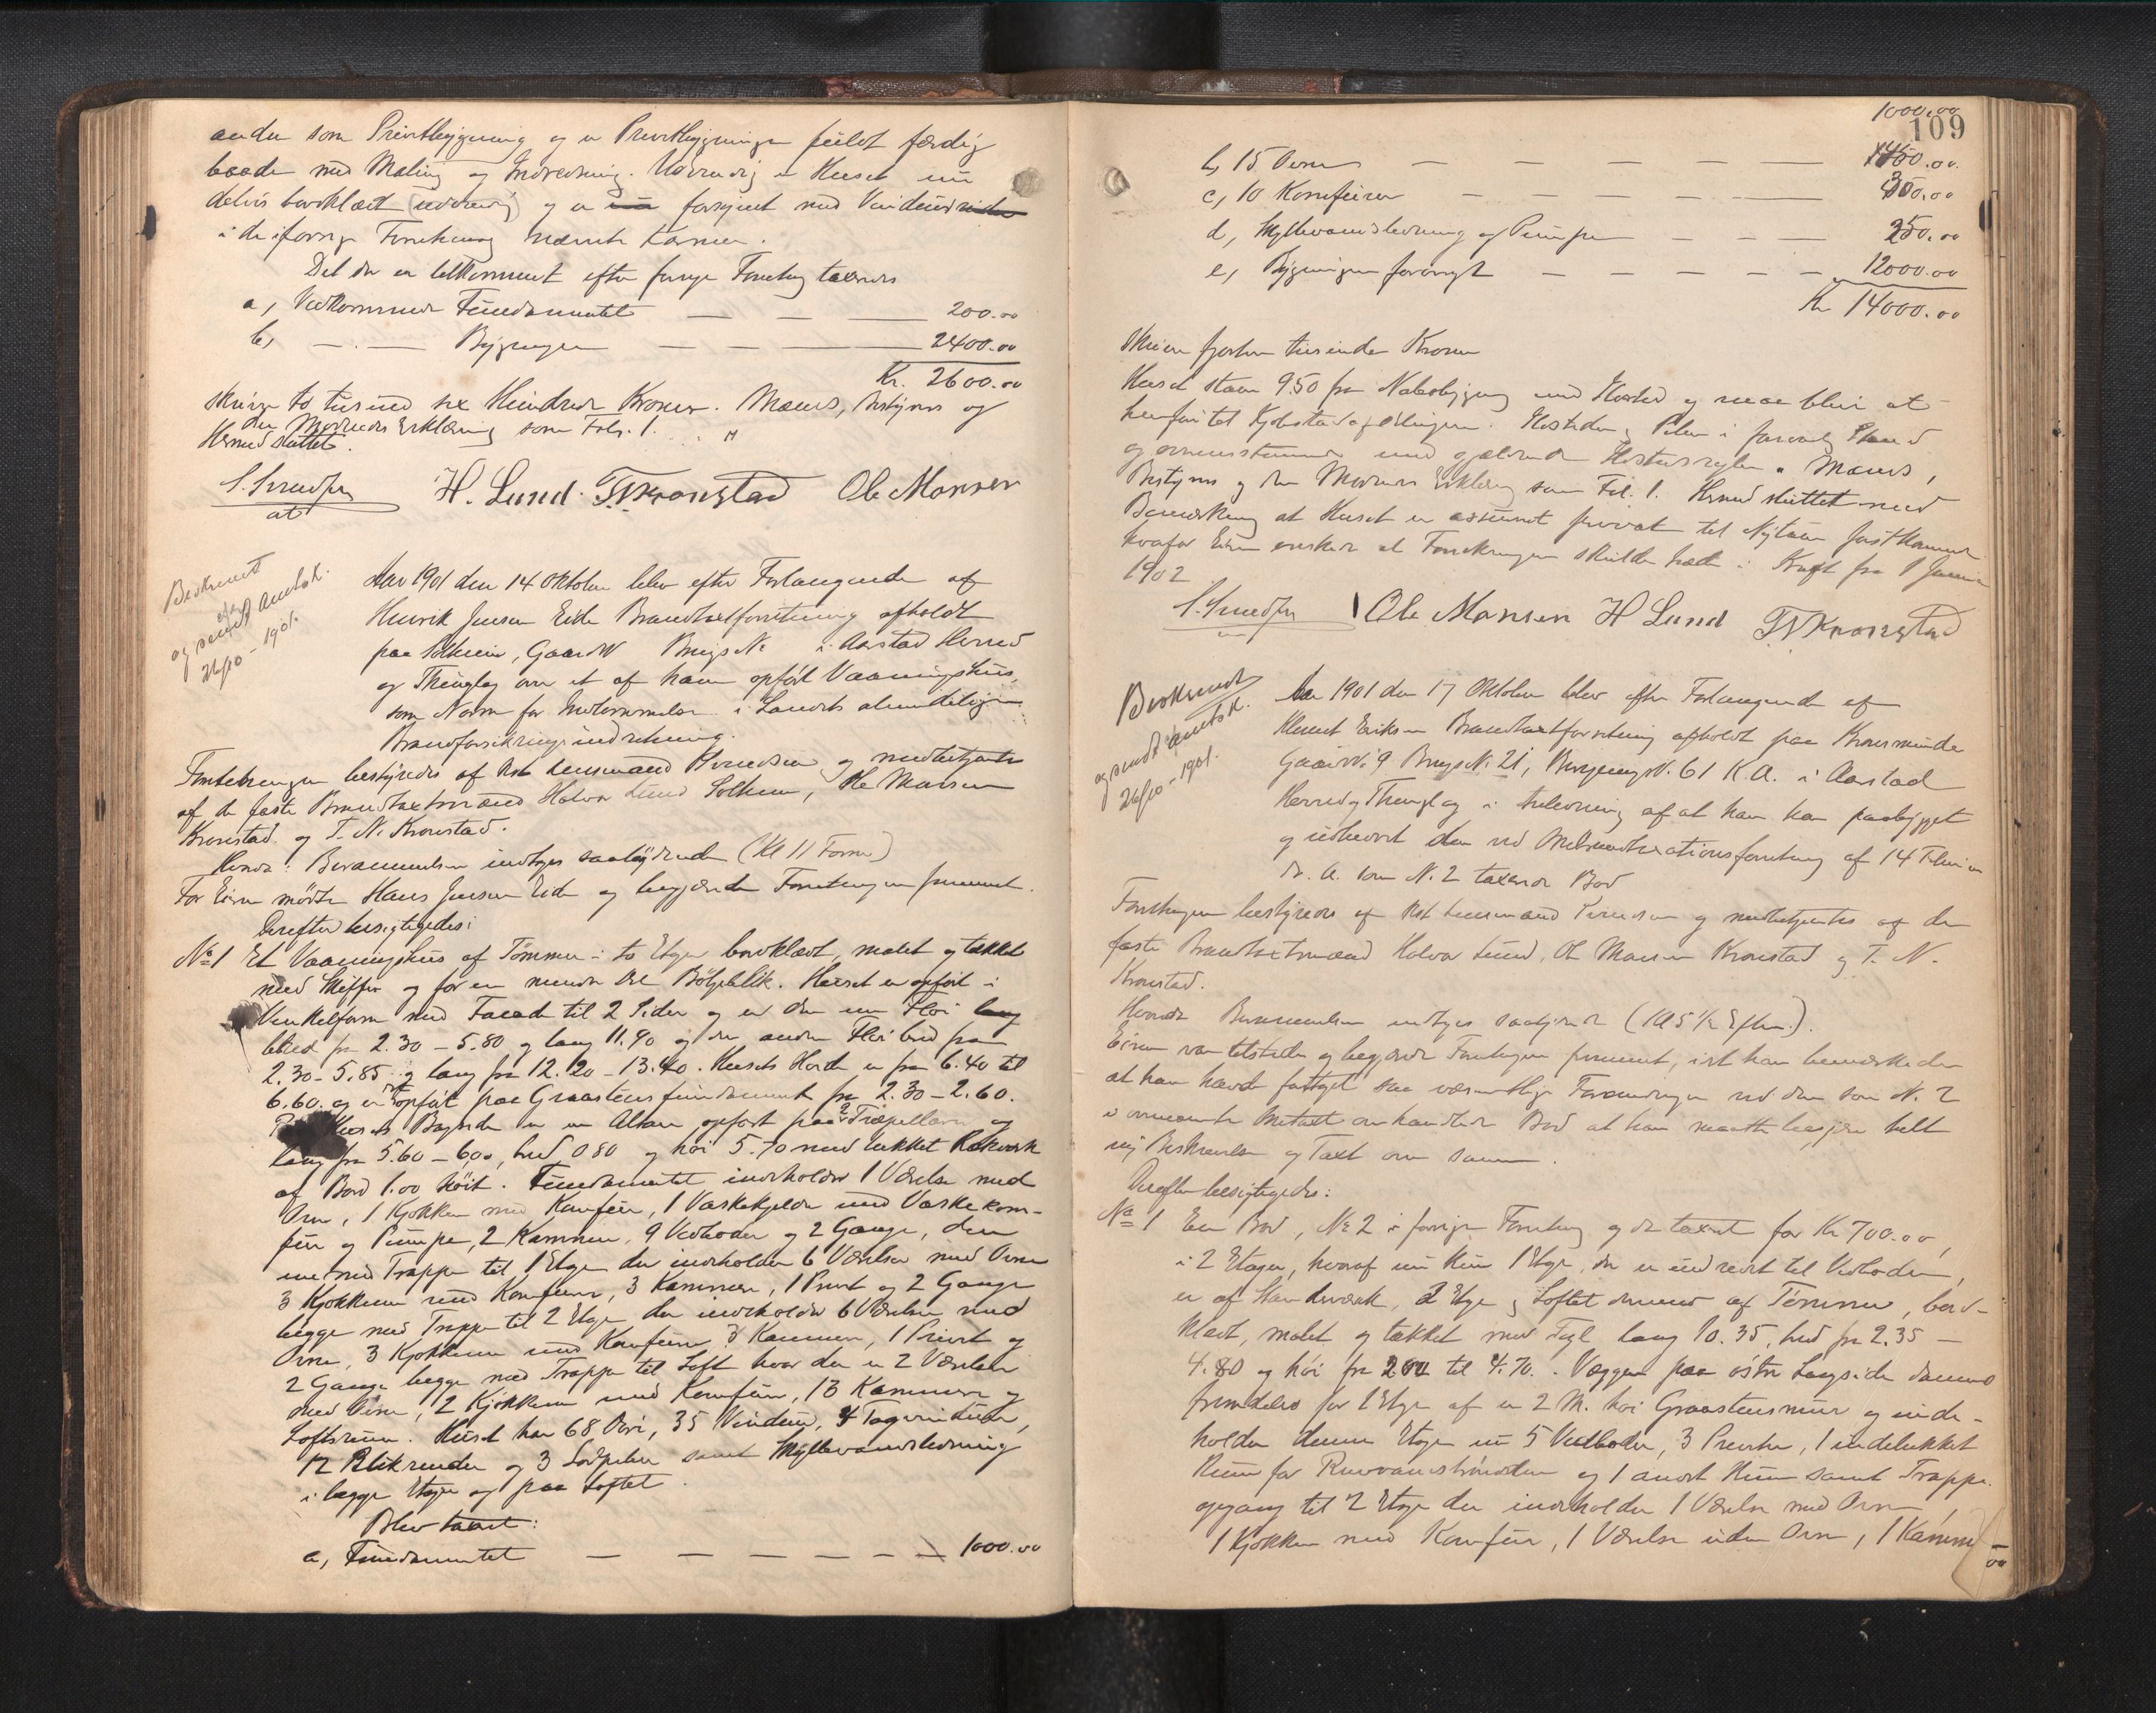 anden som Privetbygning og er Privetbygningen fuldt færdig
baade med Maling og Indredning. Udvendig er Huset nu
delvis bordklædt (udvendig) og er forsynet med Vinduer
i de i forrige Forretning nævnte Karmer.
Det der er tilkommet efter forrige Forretning taxeres
a, Vedkommende Fundamentet — — — 200.00
b, — . — Bygningen — — — 2400.00
Kr. 2600.00
skriver to tusind sex Hundrede Kroner. Mænds, Bestyrers og
den Mødendes Erklæring som Fol. 1.
Hermed sluttet.
H. Lund. T. N. Kronstad Ole Monsen
at
Beskrevet
og sendt Amtsk.
26/10 - 1901.
Aar 1901 den 14 Oktober blev efter Forlangende af
Henrik Jensen Eide Brandtaxtforretning afholdt
paa Solheim, Gaards No Brugs No i Aarstad Herred
og Thinglag over et af ham opført Vaaningshus,
som Norm for Indlemmelse i Landets almindelige
Brandforsikringsindretning.
Forretningen bestyredes af Kst Lensmand og medbetjentes
af de faste Brandtaxtmænd Halvor Lund Solheim, Ole Monsen
Kronstad og T. N. Kronstad.
Herværende Berammelsen indtoges saalydende (Kl 11 Form)
For Eieren mødte Hans Jensen Eide og begjærede Forretningen fremmet.
Derefter besigtigedes:
No 1 Et Vaaningshus af Tømmer i to Etager bordklædt, malet og tækket
med Skiffer og for en mindre Del Bølgeblik. Huset er opført i
Vinkelform med Facade til 2 Sider og er den ene Fløi
bred fra 2.30 – 5.80 og lang 11.90 og den anden Fløi bred fra
2.30 – 5.85 og lang fra 12.20 – 13.40. Husets Høide er fra 6.40 til
6.60 og er opført paa Graastensfundament fra 2.30 – 2.60.
Paa Husets Bagside er en Altan opført paa 2 Træpillarer og
lang fra 5.60 – 6.00, bred 0.80 og høi 5.70 med lukket Rækværk
af Bord 1.00 høit. Fundamentet indeholder 1 Værelse med
Ovn, 1 Kjøkken med Komfur, 1 Vaskekjelder med Vaskekom-
fur og Pumpe, 2 Kammer, 9 Vedboder og 2 Gange, den
ene med Trappe til 1 Etage der indeholder 6 Værelser med Ovne
3 Kjøkkener med Komfurer, 3 Kammer, 1 Privet og 2 Gange
begge med Trappe til 2 Etage der indeholder 6 Værelser med
Ovne, 3 Kjøkkener med Komfurer 3 Kammer, 1 Privet og
2 Gange begge med Trappe til Loft hvor der er 2 Værelser
med Ovne, 2 Kjøkkener med Komfurer, 13 Kammere og
Loftsrum. Huset har 68 Døre, 35 Vinduer, 4 Tagvinduer,
12 Blikrender og 3 Sodpiber samt Skyllevandsledning
i begge Etager og paa Loftet.
Blev taxeret:
a, Fundamentet — — — — — 1000.00
1000.00
109
b, 15 Ovne — — — — — 450.00
c, 10 Komfurer — — — — 300.00
d, Skyllevandsledning og Pumpe — — — 250.00
e, Bygningen forøvrigt — — — — — 12000.00
Kr 14000.00
skriver fjorten tusinde Kroner
Huset staar 9.50 fra Nabobygning med Ildsted og maa blive at
henføre til Kjøbstadafdelingen. Ildsteder og Piber i forsvarlig Stand
og overensstemmende med gjældende Ildstedsregler. Mænds,
Bestyrers og den Mødendes Erklæring som Fol. 1. Hermed sluttet med
Bemærkning at Huset er assureret privat til Nytaar førstkommende
hvorfor Eieren ønsker at Forsikringen skulde træde i Kraft fra 1 Januar
1902
Ole Monsen H Lund T. N. Kronstad
Beskrevet
og sendt Amtsk.
26/10 - 1901.
Aar 1901 den 17 Oktober blev efter Forlangende af
Knut Eriksen Brandtaxtforretning afholdt paa Kronsminde
Gaards No 9 Brugs No 21, Bygnings No 61 K.A. i Aarstad
Herred og Thinglag i Anledning af at han har paabygget
og udbedret den ved Omtaxationsforretning af 14 Februar
d. A. som No. 2 taxerede Bod
Forretningen bestyredes af Kst Lensmand og medbetjentes af de
faste Brandtaxtmænd Halvor Lund, Ole Monsen Kronstad og T. N.
Kronstad.
Herværende Berammelsen indtoges saalydende (Kl 5 1/2 Efterm.).
Eieren var tilstede og begjærede Forretningen fremmet, idet han bemærkede
at han havde foretaget saa væsentlige Forandringer ved den som No. 2
i ovennævnte Omtaxt omhandlede Bod at han maatte begjære helt
ny Beskrivelse og Taxt over samme.
Derefter besigtigedes:
No 1 En Bod, No 2 i forrige Forretning og da taxeret for Kr 700.00,
i 2 Etager, hvoraf nu kun 1 Etage, der er indredet til Vedboder,
er af Standerværk, 2 Etage og Loftet derimod af Tømmer, bord-
klædt, malet og tækket med Tagl lang 10.35, bred fra 2.35 –
4.80 og høi fra til 4.70. Væggen paa østre Langside dannes
fremdeles for 1 Etage af en 2 M. høi Graastensmur og inde-
holder denne Etage nu 5 Vedboder, 3 Priveter, 1 indelukket
Rum for og 1 andet Rum samt Trappe-
opgang til 2 Etage der indeholder 1 Værelse med Ovn,
1 Kjøkken med Komfur, 1 Værelse uden Ovn, 1 Kammer